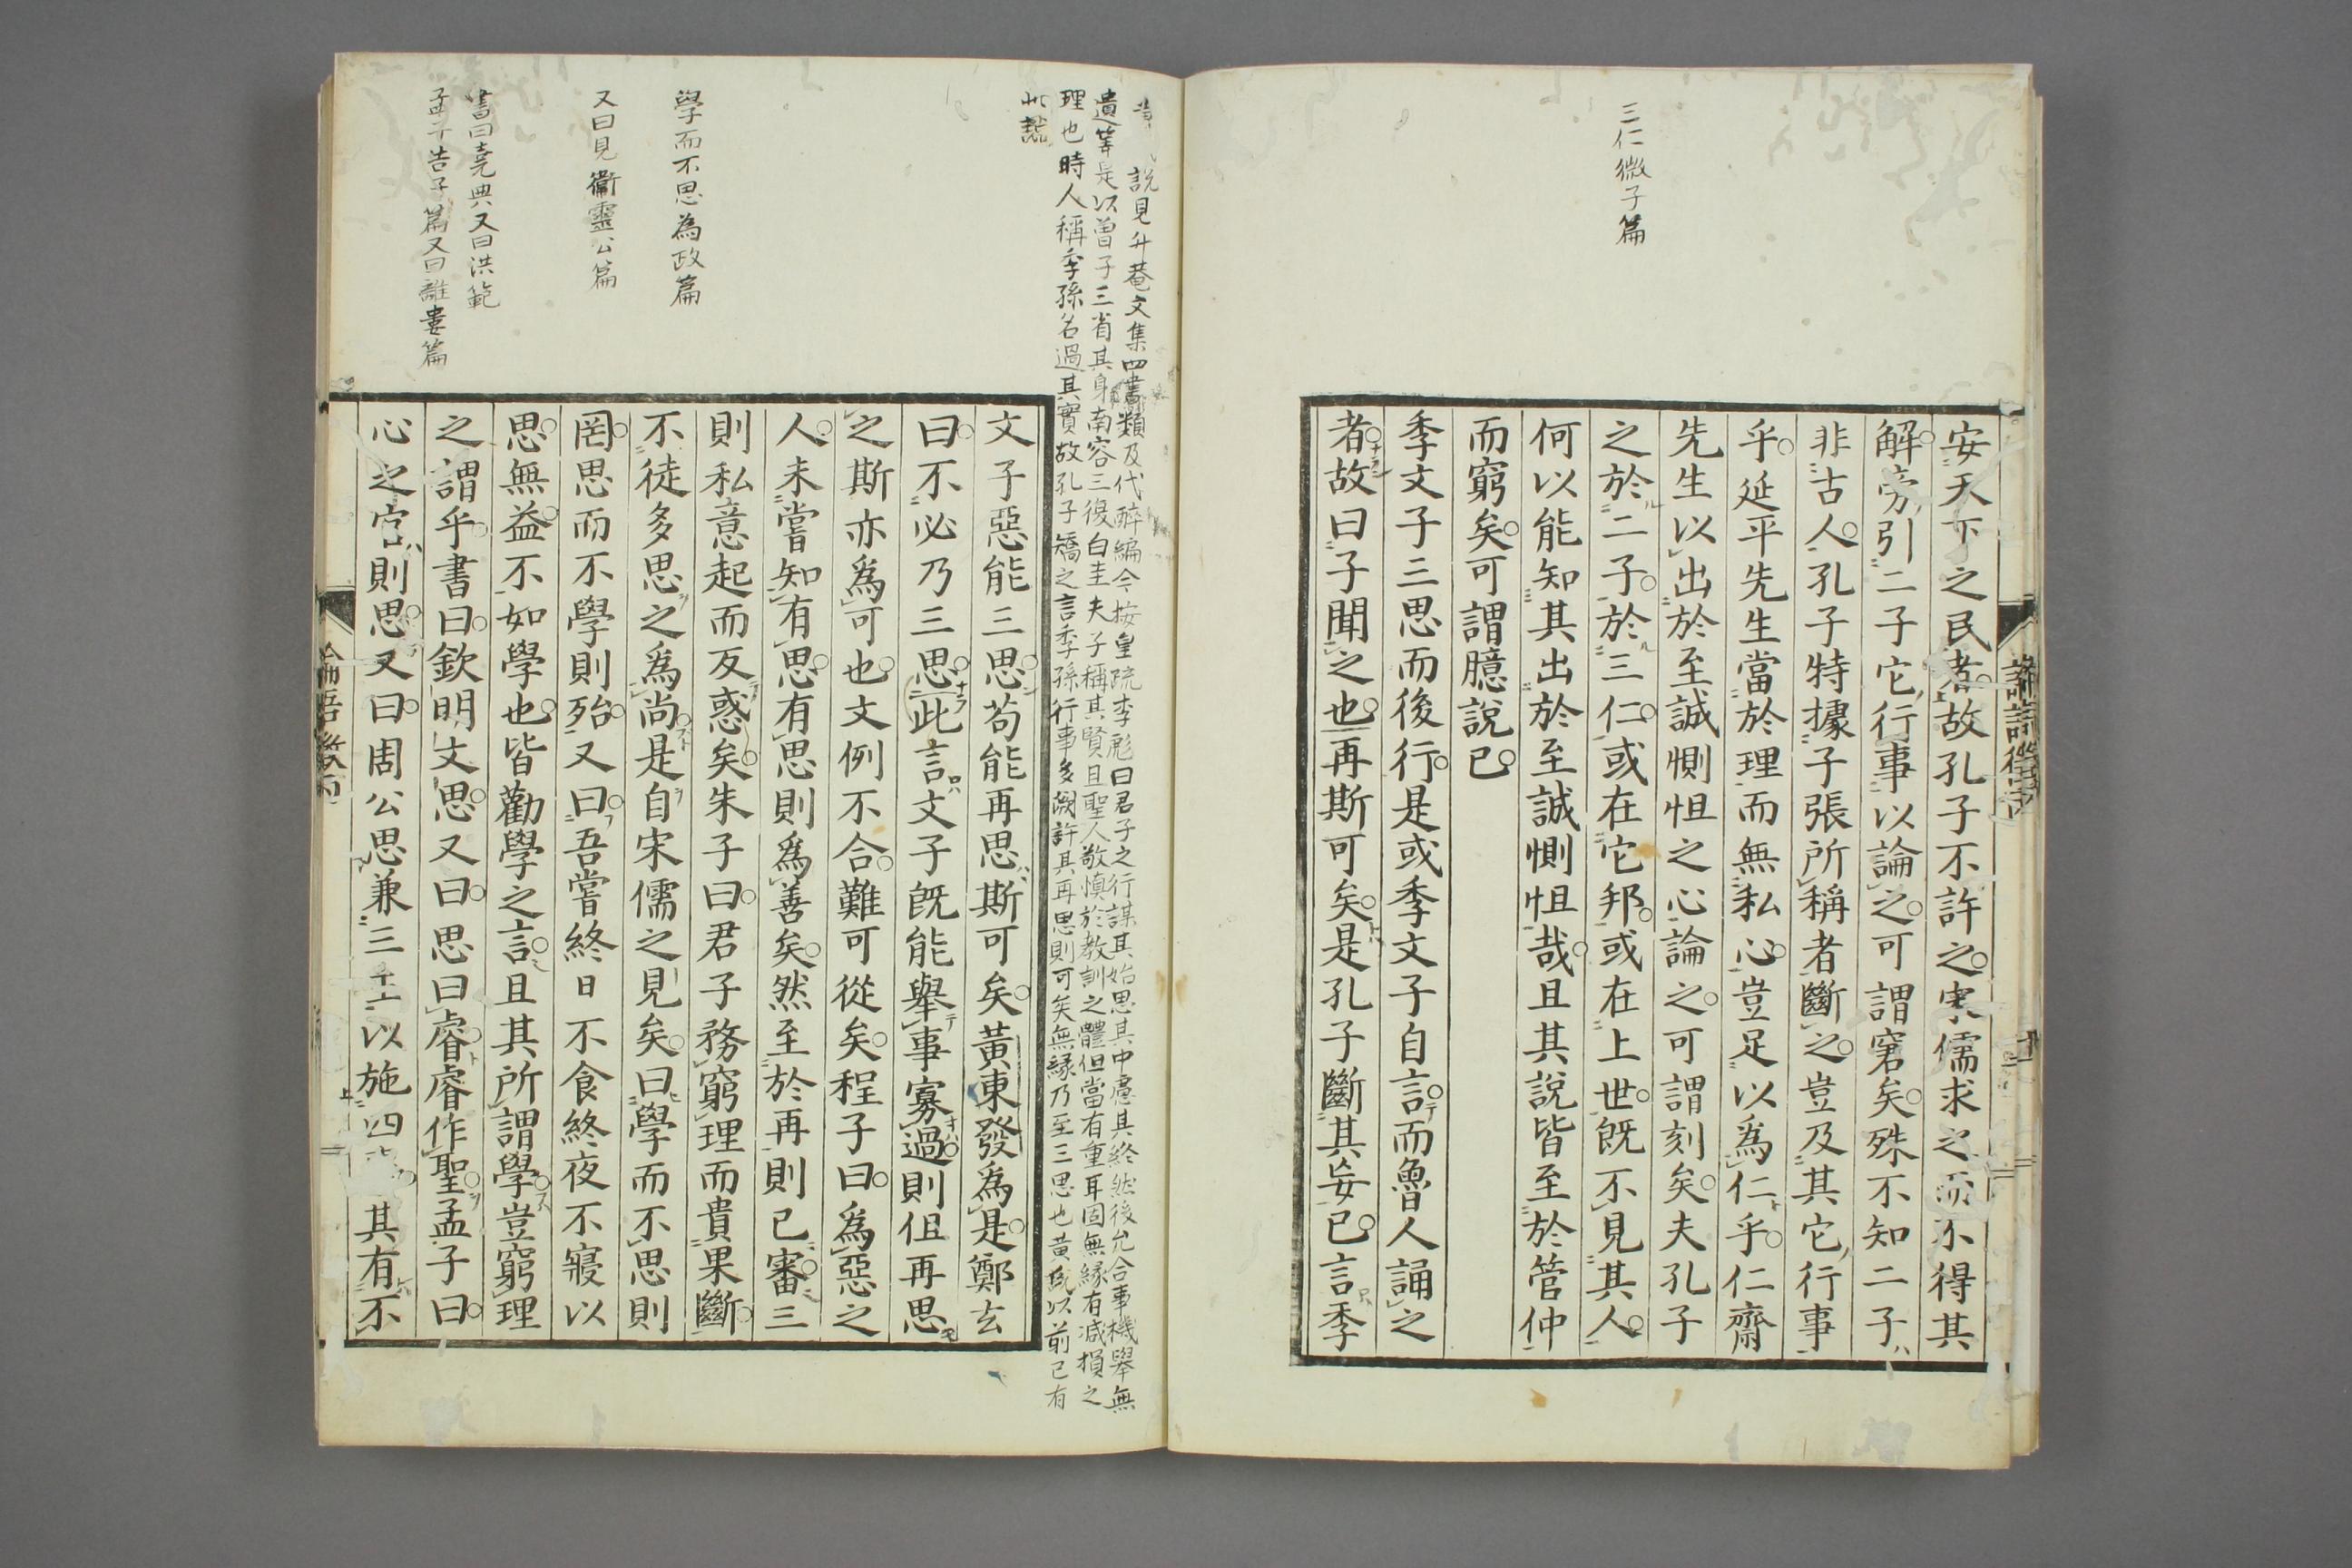 三仁微子篇
安天下之民者故孔子不許之宋儒求之而不得其
解旁引二子它行事以論之可謂窘矣殊不知二子
非古人孔子特據子張所稱者斷之豈及其它行事
乎延平先生當於理而無私心豈足以為仁乎仁齋
先生以出於至誠惻怛之心論之可謂刻矣夫孔子
之於二子於三仁或在它邦或在上世既不見其人
何以能知其出於至誠惻怛哉且其說皆至於管仲
而窮矣可謂臆說已
季文子三思而後行是或季文子自言而魯人誦之
者故曰子聞之也再斯可矣是孔子斷其妄已言季
說見升菴文集四書類及代醉編今按皇疏李彪曰君子之行謀其始思其中慮其終然後允合事機舉無
遺筭是以曾子三省其身南容三復白圭夫子稱其賢且聖人敬慎於教訓之體但當有重耳固無緣有減損之
理也時人稱季孫名過其實故孔子矯之言季孫行事多闕許其再思則可矣無緣乃至三思也黃氏以前已有
此說
學而不思為政篇
又曰見衞靈公篇
書曰堯典又曰洪範
孟子告子篇又曰離婁篇
文子惡能三思苟能再思斯可矣黃東發為是鄭玄
曰不必乃三思此言文子既能舉事寡過則但再思
之斯亦為可也文例不合難可從矣程子曰為惡之
人未嘗知有思有思則為善矣然至於再則已審三
則私意起而反惑矣朱子曰君子務窮理而貴果斷
不徒多思之為尚是自宋儒之見矣曰學而不思則
罔思而不學則殆又曰吾嘗終日不食終夜不寢以
思無益不如學也皆勸學之言且其所謂學豈窮理
之謂乎書曰欽明文思又曰思曰睿睿作聖孟子曰
心之官則思又曰周公思兼三王以施四其有不